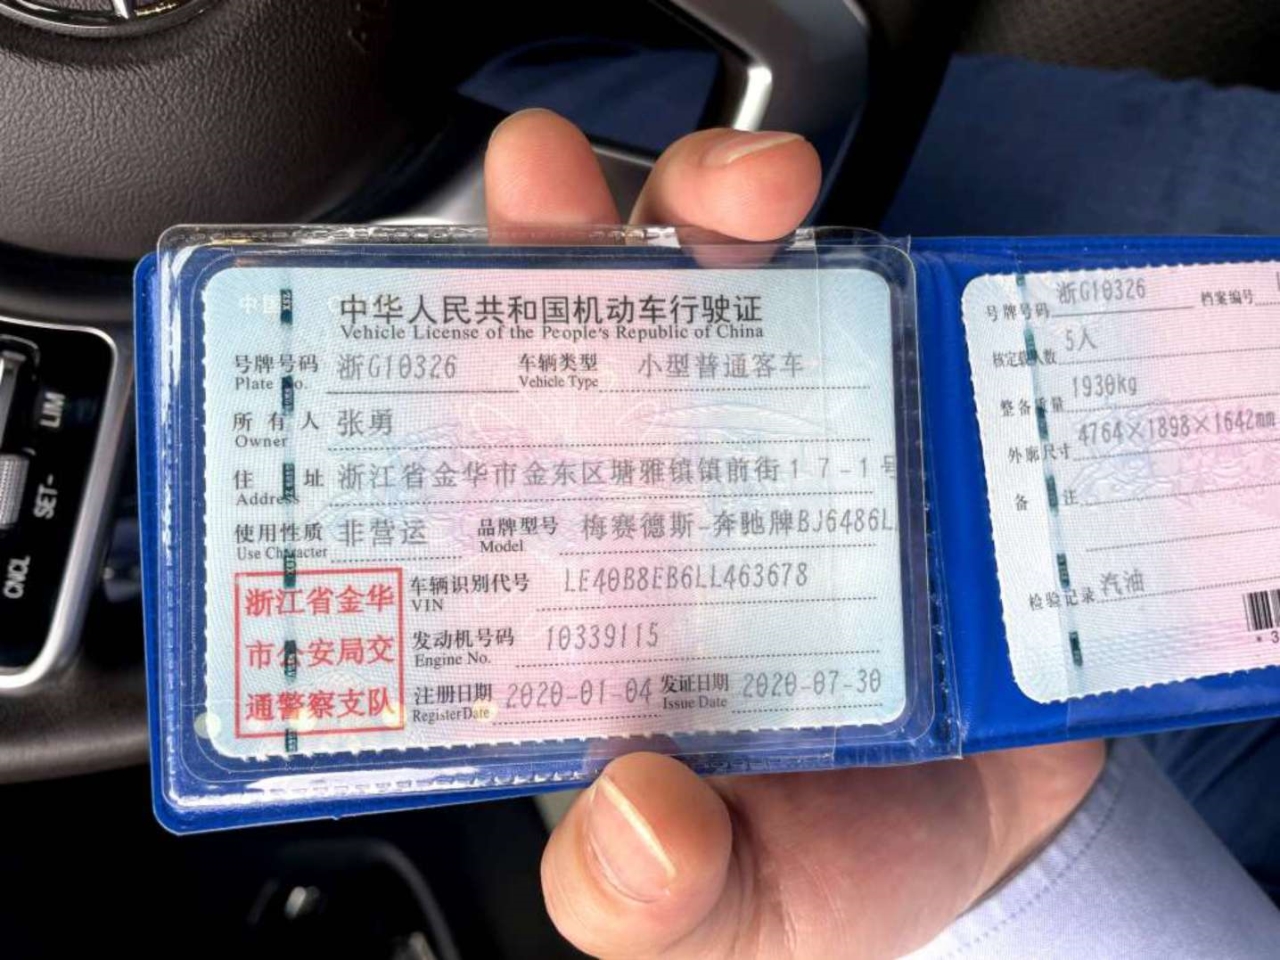 中华人民共和国机动车行驶证
Vehicle License of the People's Republic of China
号牌号码 浙G10326 车辆类型 小型普通客车
Plate No. Vehicle Type
所有人 张勇
Owner
住址 浙江省金华市金东区塘雅镇镇前街17-1号
Address
使用性质 非营运 品牌型号 梅赛德斯-奔驰牌BJ6486L
Use Character Model
车辆识别代号 LE40B8EB6LL463678
VIN
发动机号码 10339115
Engine No.
注册日期 2020-01-04 发证日期 2020-07-30
Register Date Issue Date
浙江省金华
市公安局交
通警察支队
号牌号码 浙G10326 档案编号
核定载人数 5人
整备质量 1930kg
外廓尺寸 4764×1898×1642mm
备注
检验记录 汽油
*3
LIM
SET-
CNCL